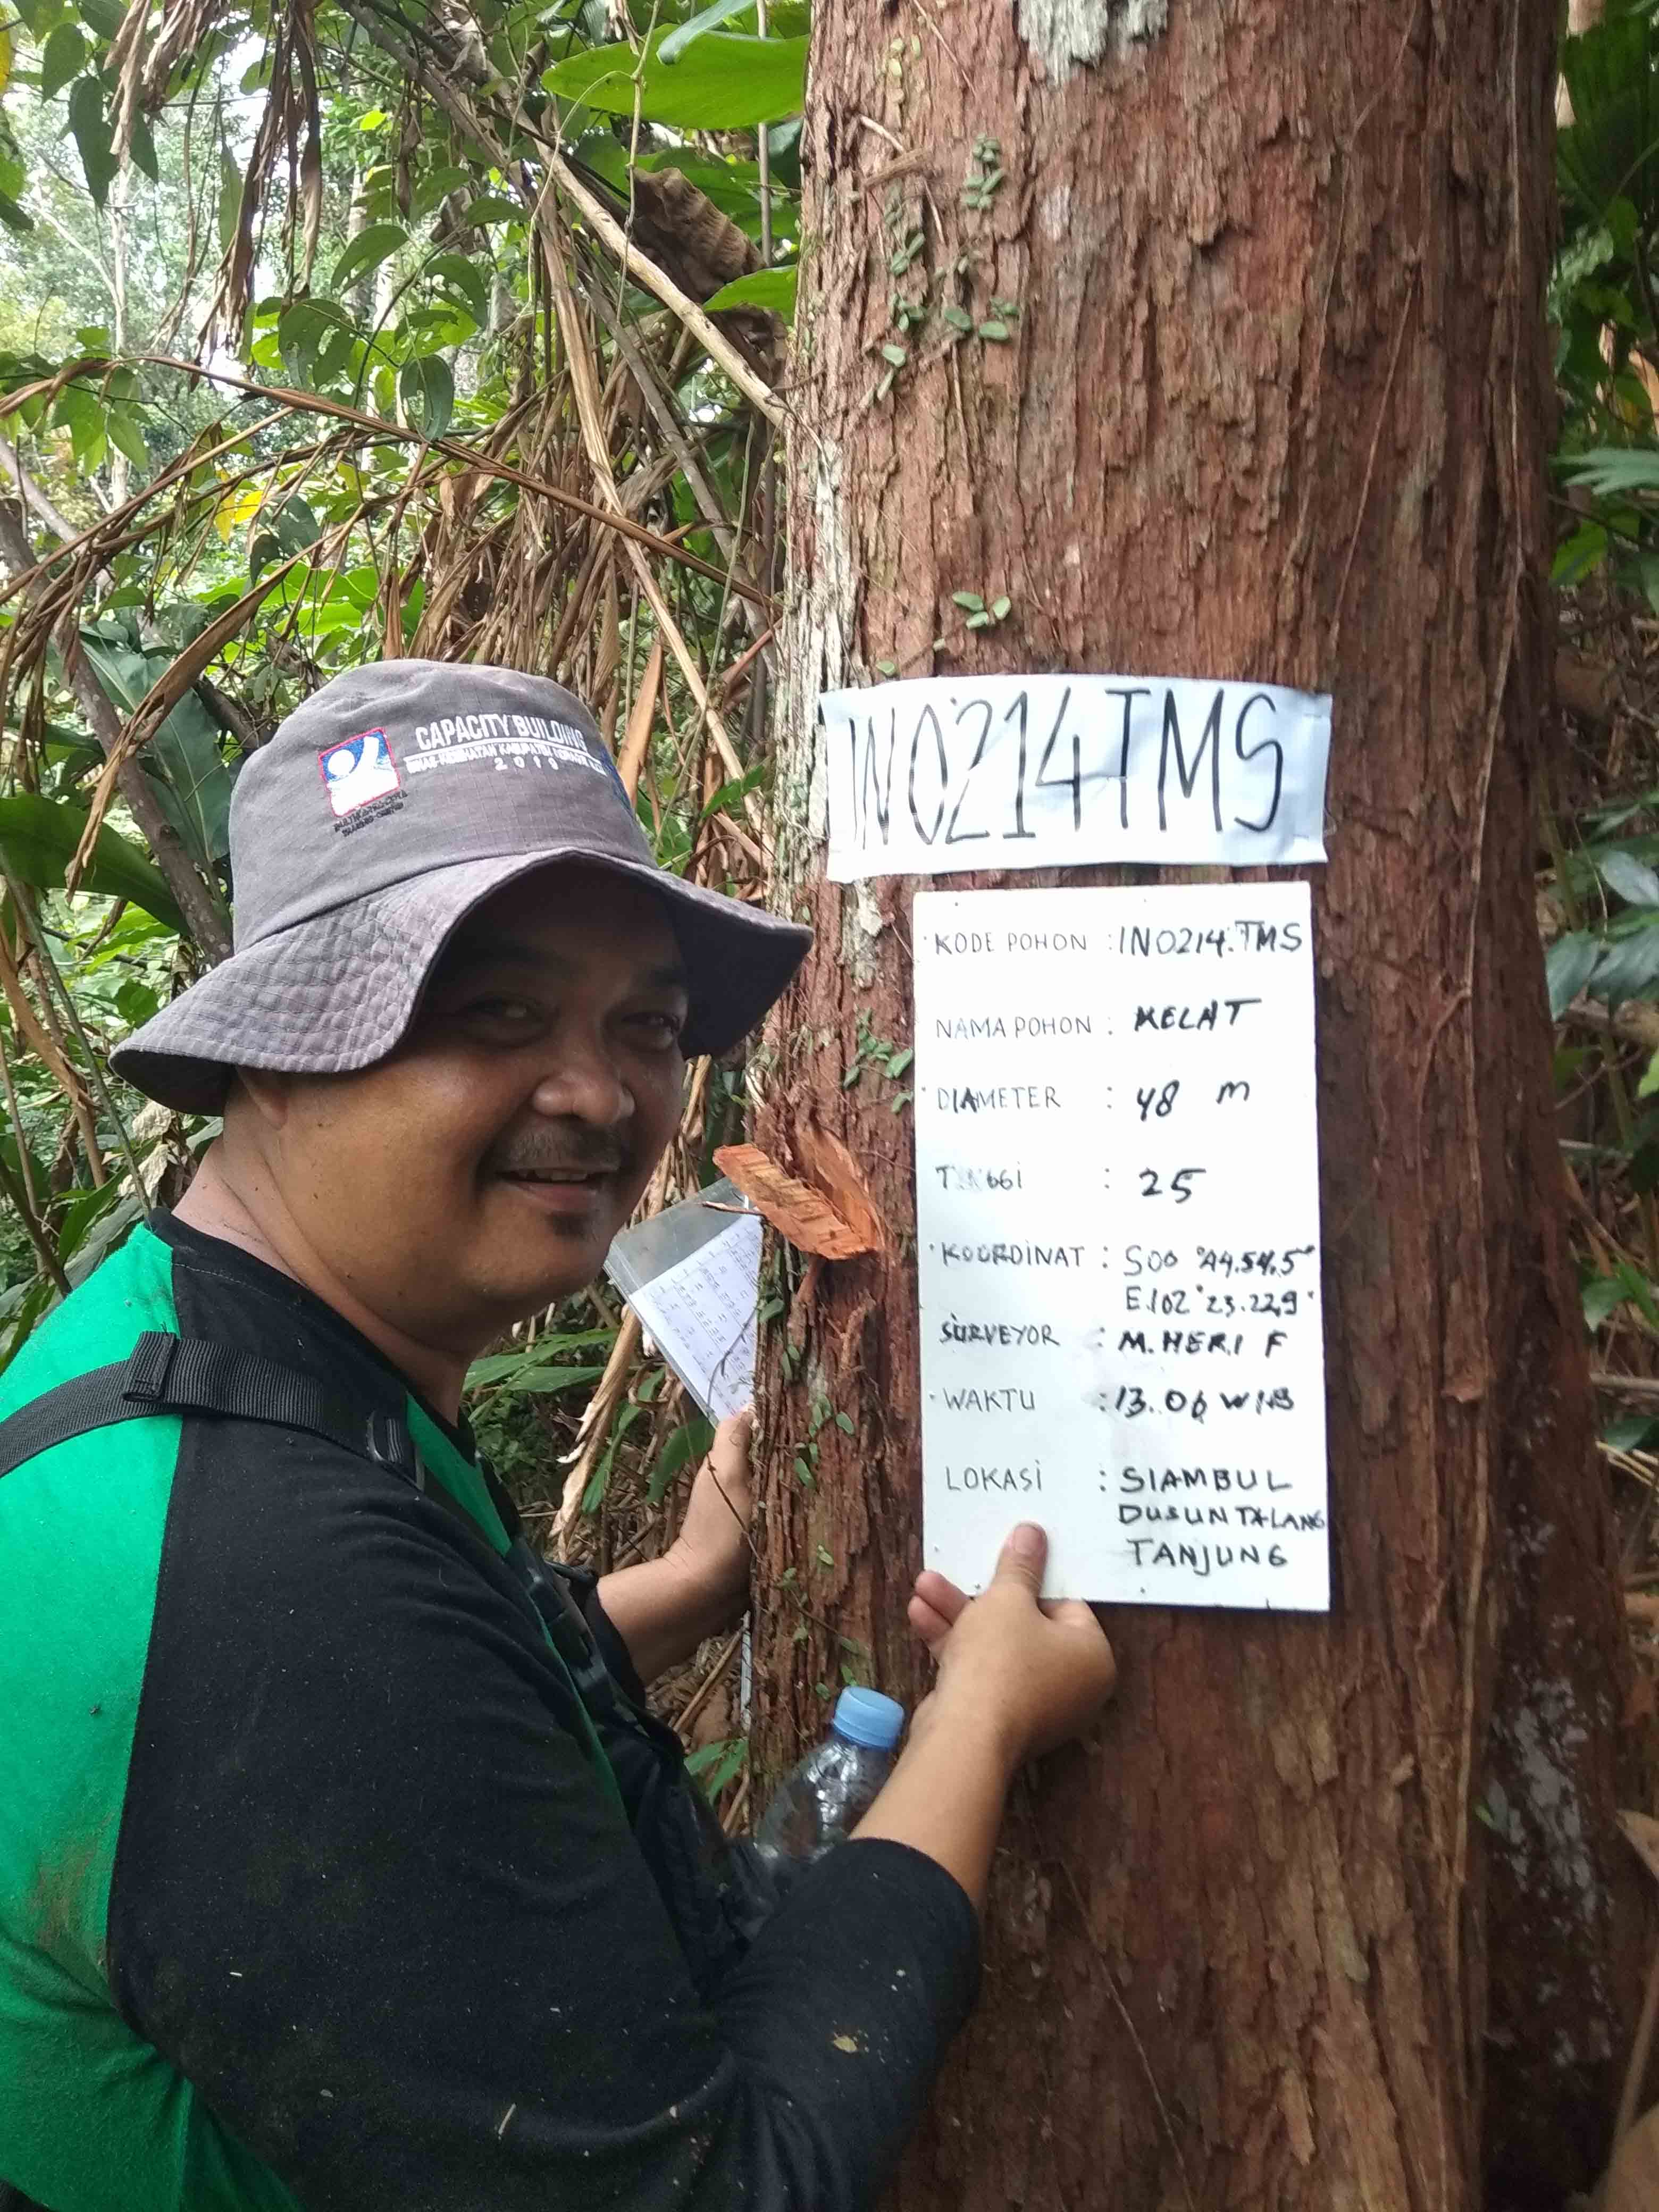 CAPACITY BUILDING
2019
IN0214TMS
KODE POHON : IN0214.TMS
NAMA POHON : KELAT
DIAMETER : 48 m
TINGGI : 25
KOORDINAT : S00
E.102°23.22,9"
SURVEYOR : M.HERI F
WAKTU : 13.06 WIB
LOKASI : SIAMBUL
DUSUN TALANG
TANJUNG